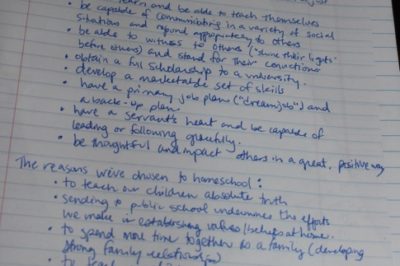 learn and be able to teach themselves
• be capable of communicating in a variety of social
situations and respond appropriately to others
• be able to witness to others ("shine their lights"
before others) and stand for their convictions
• obtain a full scholarship to a university.
• develop a marketable set of skills
• have a primary job plan ("dream job") and
a back-up plan
• have a servant's heart and be capable of
leading or following gracefully.
• be thoughtful and impact others in a great, positive way
The reasons we've chosen to homeschool:
• to teach our children absolute truth
• sending to public school undermines the efforts
we make in establishing values/beliefs at home.
• to spend more time together as a family (developing
strong family relationships)